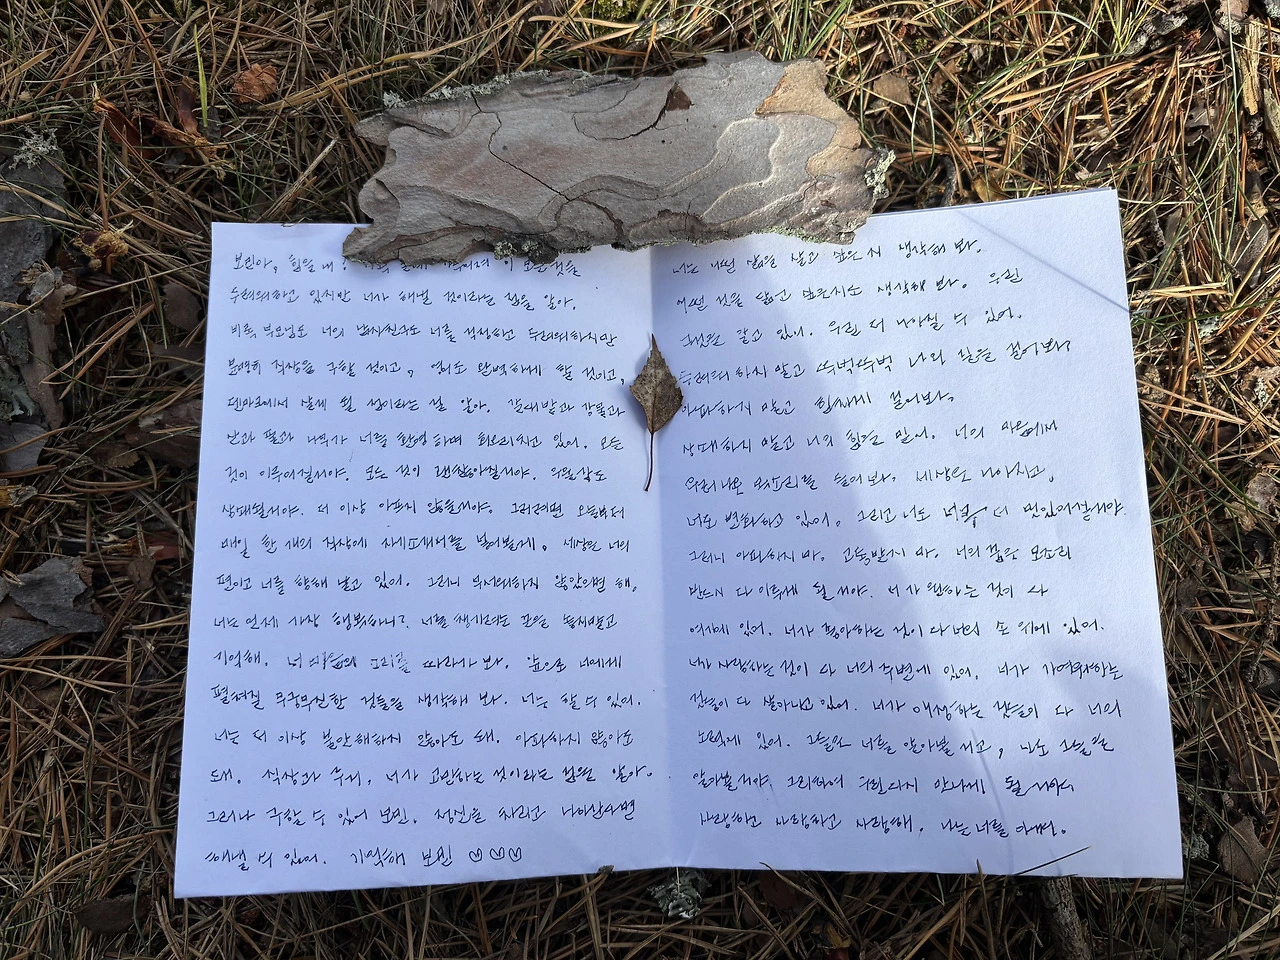 보린아, 힘을 내 이 모든것을
두려워하고 있지만 너가 해낼 것이라는 점을 알아.
비록 부모님도 너의 남자친구도 너를 걱정하고 두려워하지만
분명히 직장을 구할 것이고, 영어도 완벽하게 할 것이고,
덴마크에서 살게 될 것이라는 걸 알아. 갈대밭과 강물과
산과 들과 나무가 너를 환영하며 있어. 모든
것이 이루어질거야. 모든 것이 괜찮아질거야. 우울감도
상대될거야. 더 이상 아프지 않을거야. 그러려면 오늘부터
매일 한 개의 직장에 자기소개서를 넣어볼게, 세상은 너의
편이고 너를 향해 열고 있어. 그러니 무서워하지 않았으면 해.
너는 언제 가장 행복하니? 너를 옥은 놓지말고
기억해. 너 마음의 소리를 따라가 봐. 앞으로 너에게
펼쳐질 무궁무진한 것들을 생각해 봐. 너는 할 수 있어.
너는 더 이상 불안해하지 않아도 돼. 아파하지 않아도
돼. 직장과 너가 고민하는 것이라는 점을 알아.
그러나 구할 수 있어 보린. 정신을 차리고 나아간다면
해낼 수 있어. 기억해 보린 ♡♡♡
너는 어떤 삶을 살고 싶은지 생각해 봐.
어떤 것을 하고 싶은지도 생각해 봐. 우린
같고 있어. 우린 더 나아질 수 있어.
두려워하지 말고 뚜벅뚜벅 나의 길을 걸어봐.
아파하지 말고 힘차게 걸어봐.
상대하지 말고 너의 힘을 믿어. 너의 마음에서
우러나온 목소리를 들어봐. 세상은 나아지고,
너도 변화하고 있어. 그리고 너도 더
그러니 아파하지 마. 고통받지 마. 너의 꿈은 모조리
반드시 다 이루게 될거야. 너가 원하는 것이 다
여기에 있어. 너가 좋아하는 것이 다 너의 손 위에 있어.
너가 사랑하는 것이 다 너의 주변에 있어. 너가 가여워하는
것들이 다 살아나고 있어. 너가 애정하는 것들이 다 너의
있어. 그들은 너를 알아볼 거고, 너도 그들을
알아볼거야. 그리하여 우린 다시 만나게 될거야.
사랑하고 사랑하고 사랑해. 나는 너를